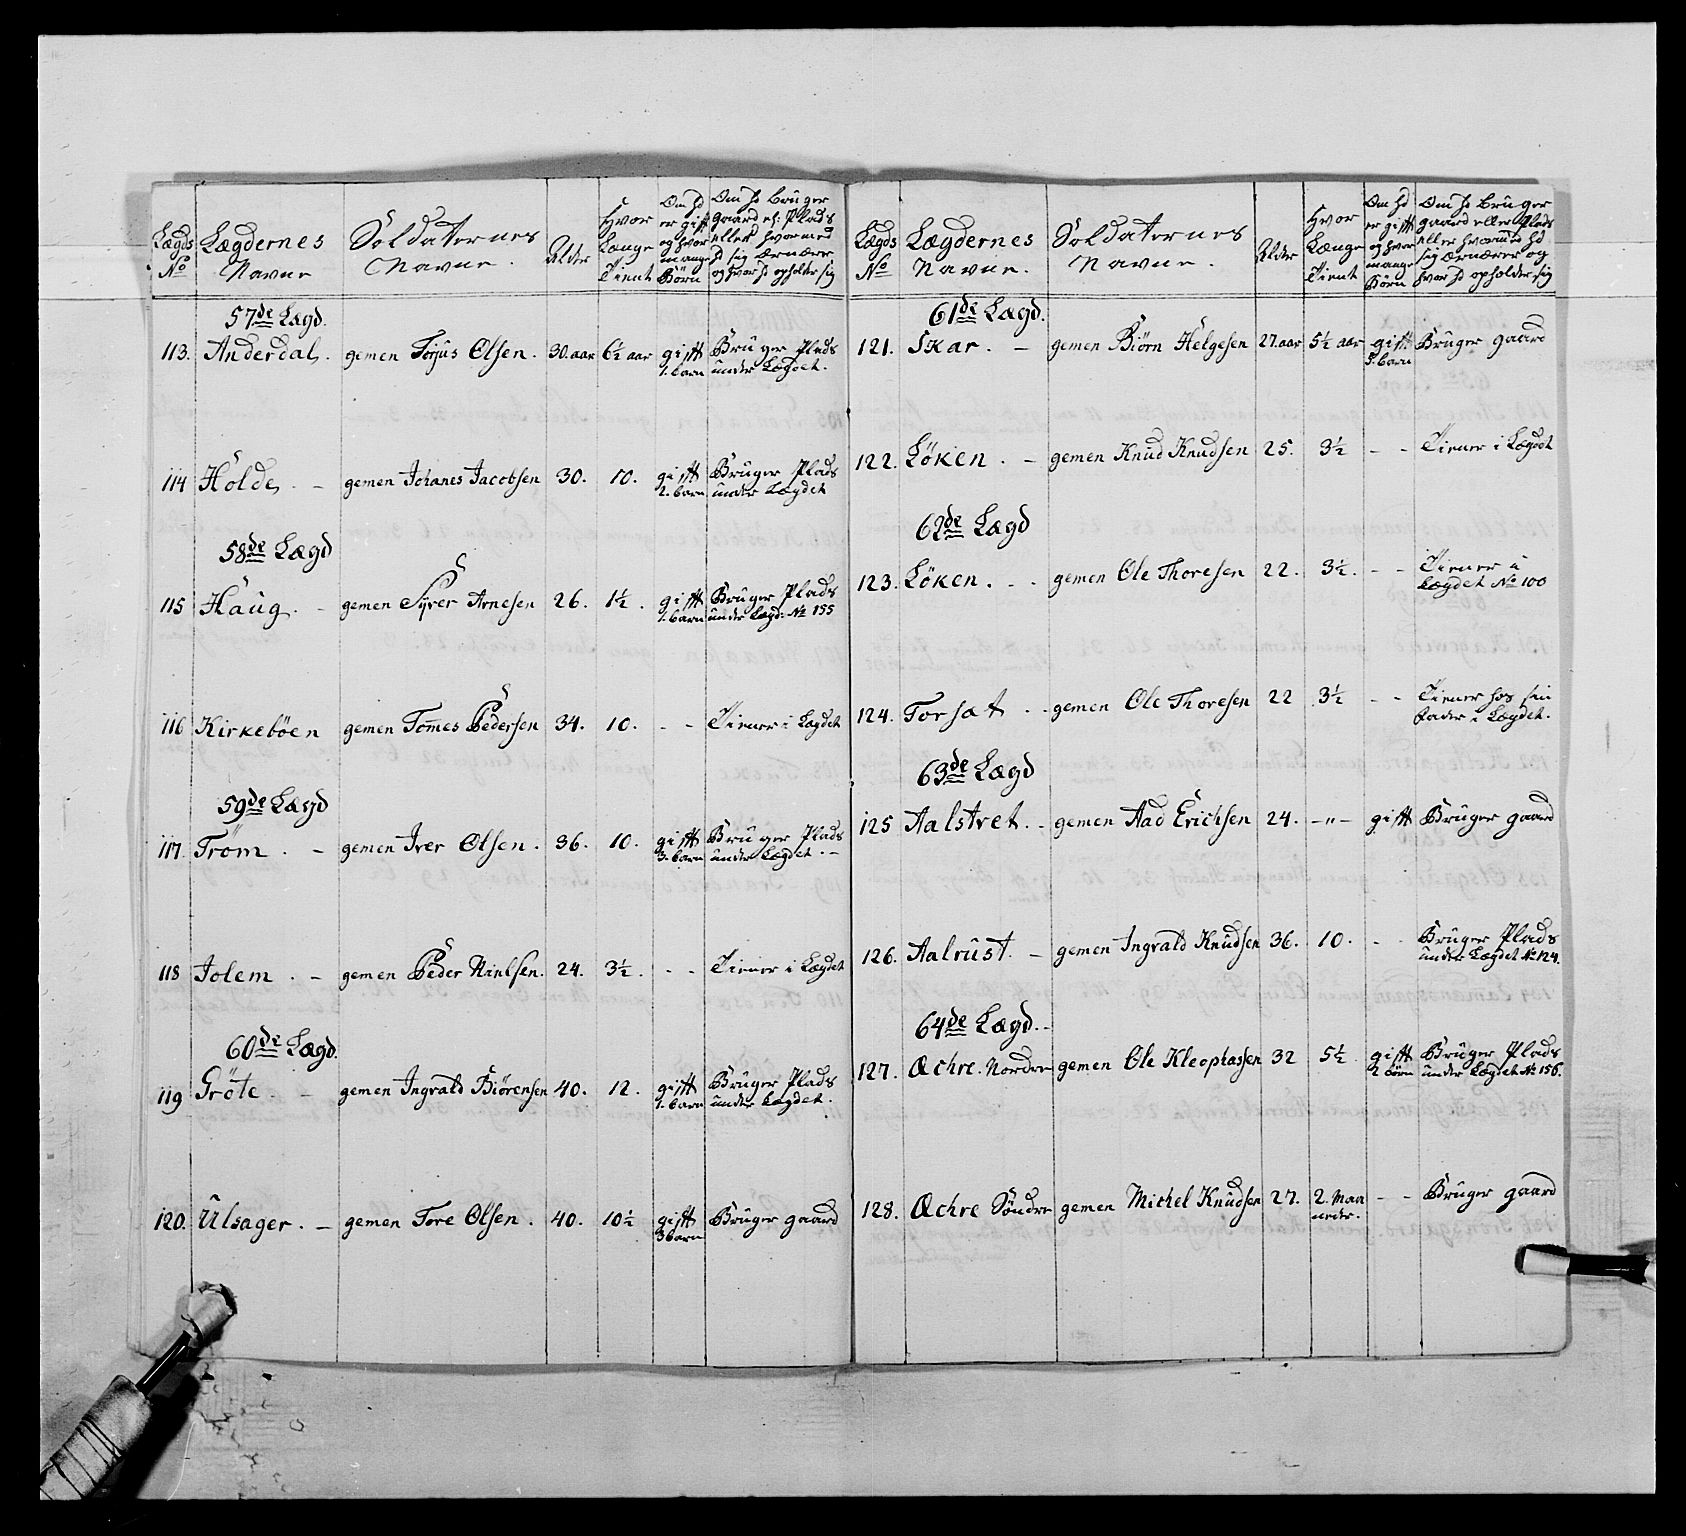 Lægds No | Lægdernes Navne | Soldaternes Navne. | Alder | Hvor Længe Tient | Om hd er gift og hvor mange Börn | Om hd brüger gaard el: Plads eller hvormed hd sig ærnærer og hvor hd opholder sig
57de Lægd.
113. Anderdal. gemen Torjus Olsen. 30. aar 6½ aar gift 1. barn Brüger Plads under Lægdet.
114 Holde. – gemen Johanes Jacobsen 30. 10. gift 2. barn Brüger Plads under Lægdet
58de Lægd
115 Haug. – gemen Syver Arnesen 26. 1½. gift 1. barn Brüger Plads under Lægd: No 155
116 Kirkebøen gemen Tomes Pedersen 34. 10. - - Tiener i Lægdet
59de Lægd
117. Tröm. – gemen Iver Olsen. 36. 10. gift 3. barn Brüger Plads under Lægdet. –
118 Jolem. – gemen Peder Nielsen. 24. 3½. - - Tiener i Lægdet
60de Lægd.
119 Gröte. – gemen Ingvald Biörensen 40. 12. gift 1. barn Brüger Plads under Lægdet.
120. Ulsager. – gemen Tore Olsen. 40. 10½ gift 3 barn Brüger gaard
Lægds No | Lægdernes Navne. | Soldaternes Navne. | Alder | Hvor Længe Tient | Om hd er gift og hvor mange Börn | Om hd brüger gaard eller Plads eller hvormed hd sig ærnærer og hvor hd opholder sig
61de Lægd.
121. Skar. – gemen Biörn Helgesen 27. aar 5½ aar gift 5. barn Brüger gaard
122. Löken. – gemen Knud Knudsen 25. 3½ - - Tiener i Lægdet
62de Lægd
123. Löken. - - gemen Ole Thoresen 22. 3½. - - Tiener i Lægdet No 100
124. Torsat. - gemen Ole Thoresen 22 3½ - - Tiener hos sin fader i Lægdet.
63de Lægd
125 Aalstvet. – gemen Aad Erichsen 24. –"– gift Brüger gaard
126. Aalrüst. – gemen Ingvald Knüdsen 36. 10. - - Brüger Plads under Lægdet No 124.
64de Lægd. -
127. Œchre. Nordre gemen Ole Kleophassen 32 5½ gift 2 börn Brüger Plads under Lægdet No 156.
128. Œchre Söndre gemen Michel Knüdsen 27. 2. Maaneder. - - Brüger gaard